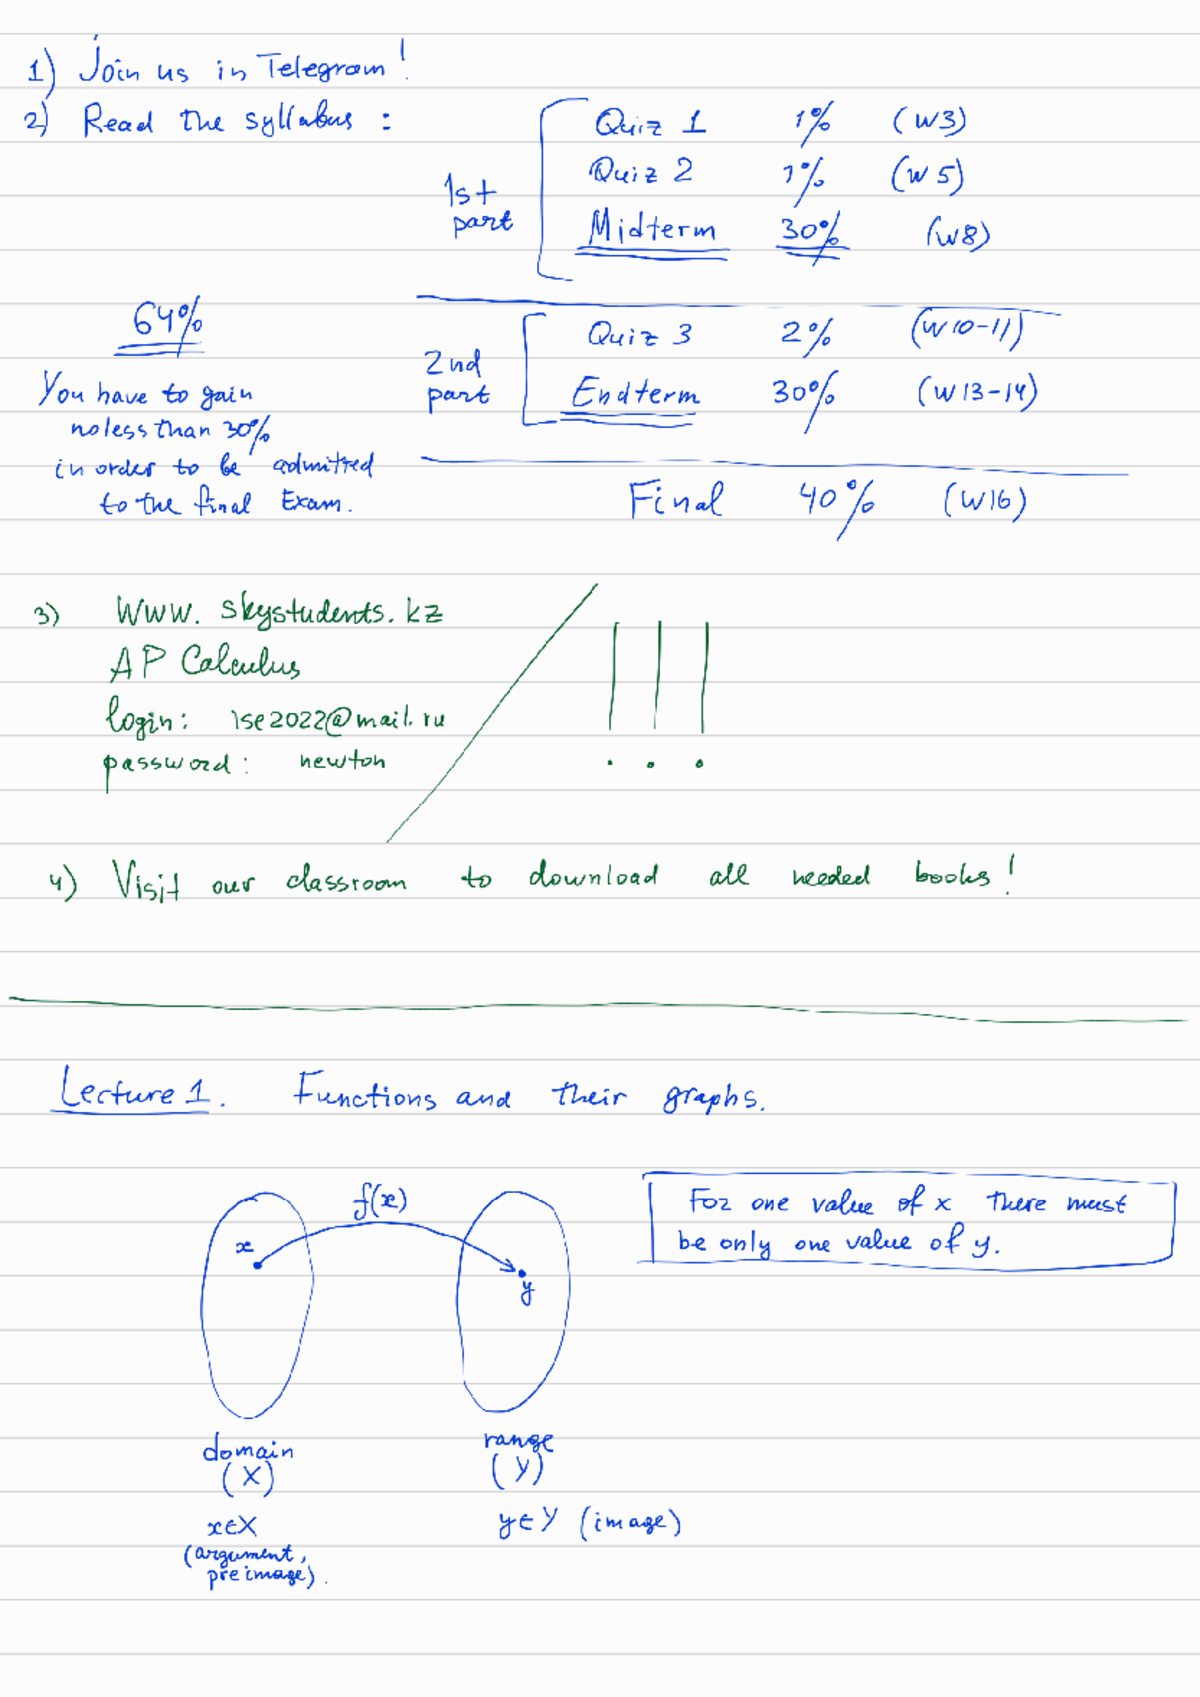 1) Join us in Telegram!
2) Read the syllabus :
1st part
Quiz 1 1% (W3)
Quiz 2 1% (W5)
Midterm 30% (W8)
64%
You have to gain
no less than 30%
in order to be admitted
to the final Exam.
2nd part
Quiz 3 2% (W10-11)
Endterm 30% (W13-14)
Final 40% (W16)
3) www. skystudents. kz
AP Calculus
login: lse2022@mail.ru
password: newton
! ! !
4) Visit our classroom to download all needed books!
Lecture 1. Functions and their graphs.
f(x)
x
y
For one value of x there must
be only one value of y.
domain
(X)
x∈X
(argument,
preimage).
range
(Y)
y∈Y (image)